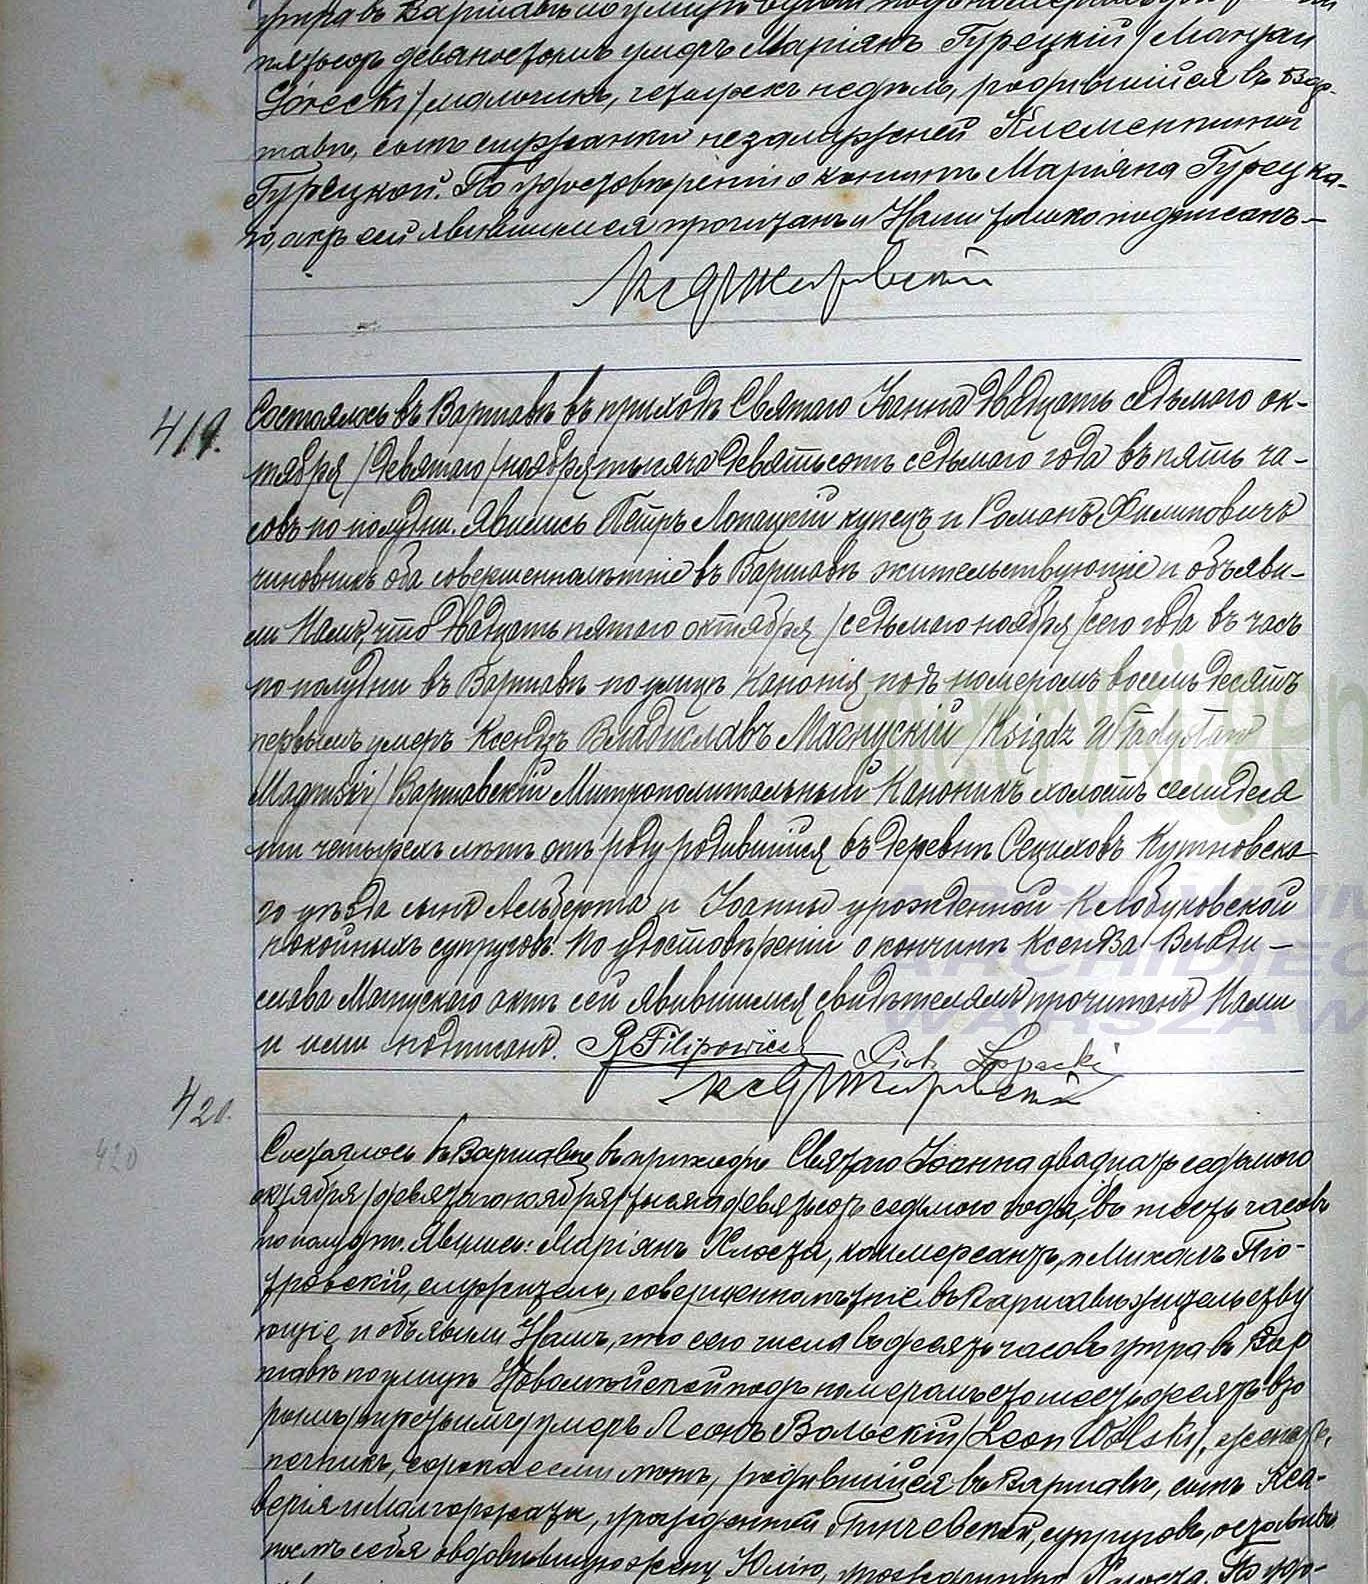 пятьсотъ девяностымъ умеръ Маріянъ Гурецкій /Maryan
Górecki/ мальчикъ, четырехъ недѣль, родившійся въ Вар-
шавѣ, сынъ служанки незамужней Клементины
Гурецкой. По удостовѣреніи о кончинѣ Маріяна Гурецка-
го, актъ сей явившимся прочитанъ и Нами только подписанъ.—
419.
Состоялось въ Варшавѣ въ приходѣ Святаго Іоанна двадцать седьмаго ок-
тября /девятаго/ ноября тысяча девятьсотъ седьмаго года въ пять ча-
совъ по полудни. Явились Петръ Лопацкій купецъ и Романъ Филиповичъ
чиновникъ оба совершеннолѣтніе въ Варшавѣ жительствующіе и объяви-
ли Намъ, что двадцать пятаго октября /седьмаго ноября/ сего года въ часъ
по полудни въ Варшавѣ по улицѣ Канонія подъ номеромъ восемьдесятъ
первымъ умеръ Ксендзъ Владиславъ Магнускій /Ksiądz Władysław
Magnuski/ Варшавскій Митрополитальный Каноникъ холостъ семидеся
ти четырехъ лѣтъ отъ роду родившійся въ деревнѣ Сецеховъ Кутновска
го уѣзда сынъ Альберта и Іоанны урожденной Клобуковской
покойныхъ супруговъ. По удостовѣреніи о кончинѣ Ксендза Влади-
слава Магнускаго актъ сей явившимся свидѣтелямъ прочитанъ Нами
и ими подписанъ. R Filipowicz Piotr Łopacki
420.
420
Состоялось въ Варшавѣ въ приходѣ Святаго Іоанна двадцать седьмого
октября /девятаго ноября/ тысяча девятьсотъ седьмого года, въ шесть часовъ
по полудни. Явились: Маріянъ Хлоста, коммерсантъ, и Михаилъ Піо-
тровскій, служитель, совершеннолѣтніе въ Варшавѣ жительству
ющіе и объявили Намъ, что сего числа въ десять часовъ утра въ Вар
шавѣ по улицѣ Новолипской подъ номеромъ сто шестьдесятъ вто
рымъ умеръ Леонъ Вольскій /Leon Wolski/, женатъ,
печникъ, сорока семи лѣтъ, родившійся въ Варшавѣ, сынъ Кса-
верія и Малгоржаты, урожденной Пинчевской, супруговъ, оставивъ
послѣ себя овдовѣвшую жену Юлію, урожденную Хлоста. По удо-
metryki.gen
ARCHIWUM
ARCHIDIEC
WARSZAW